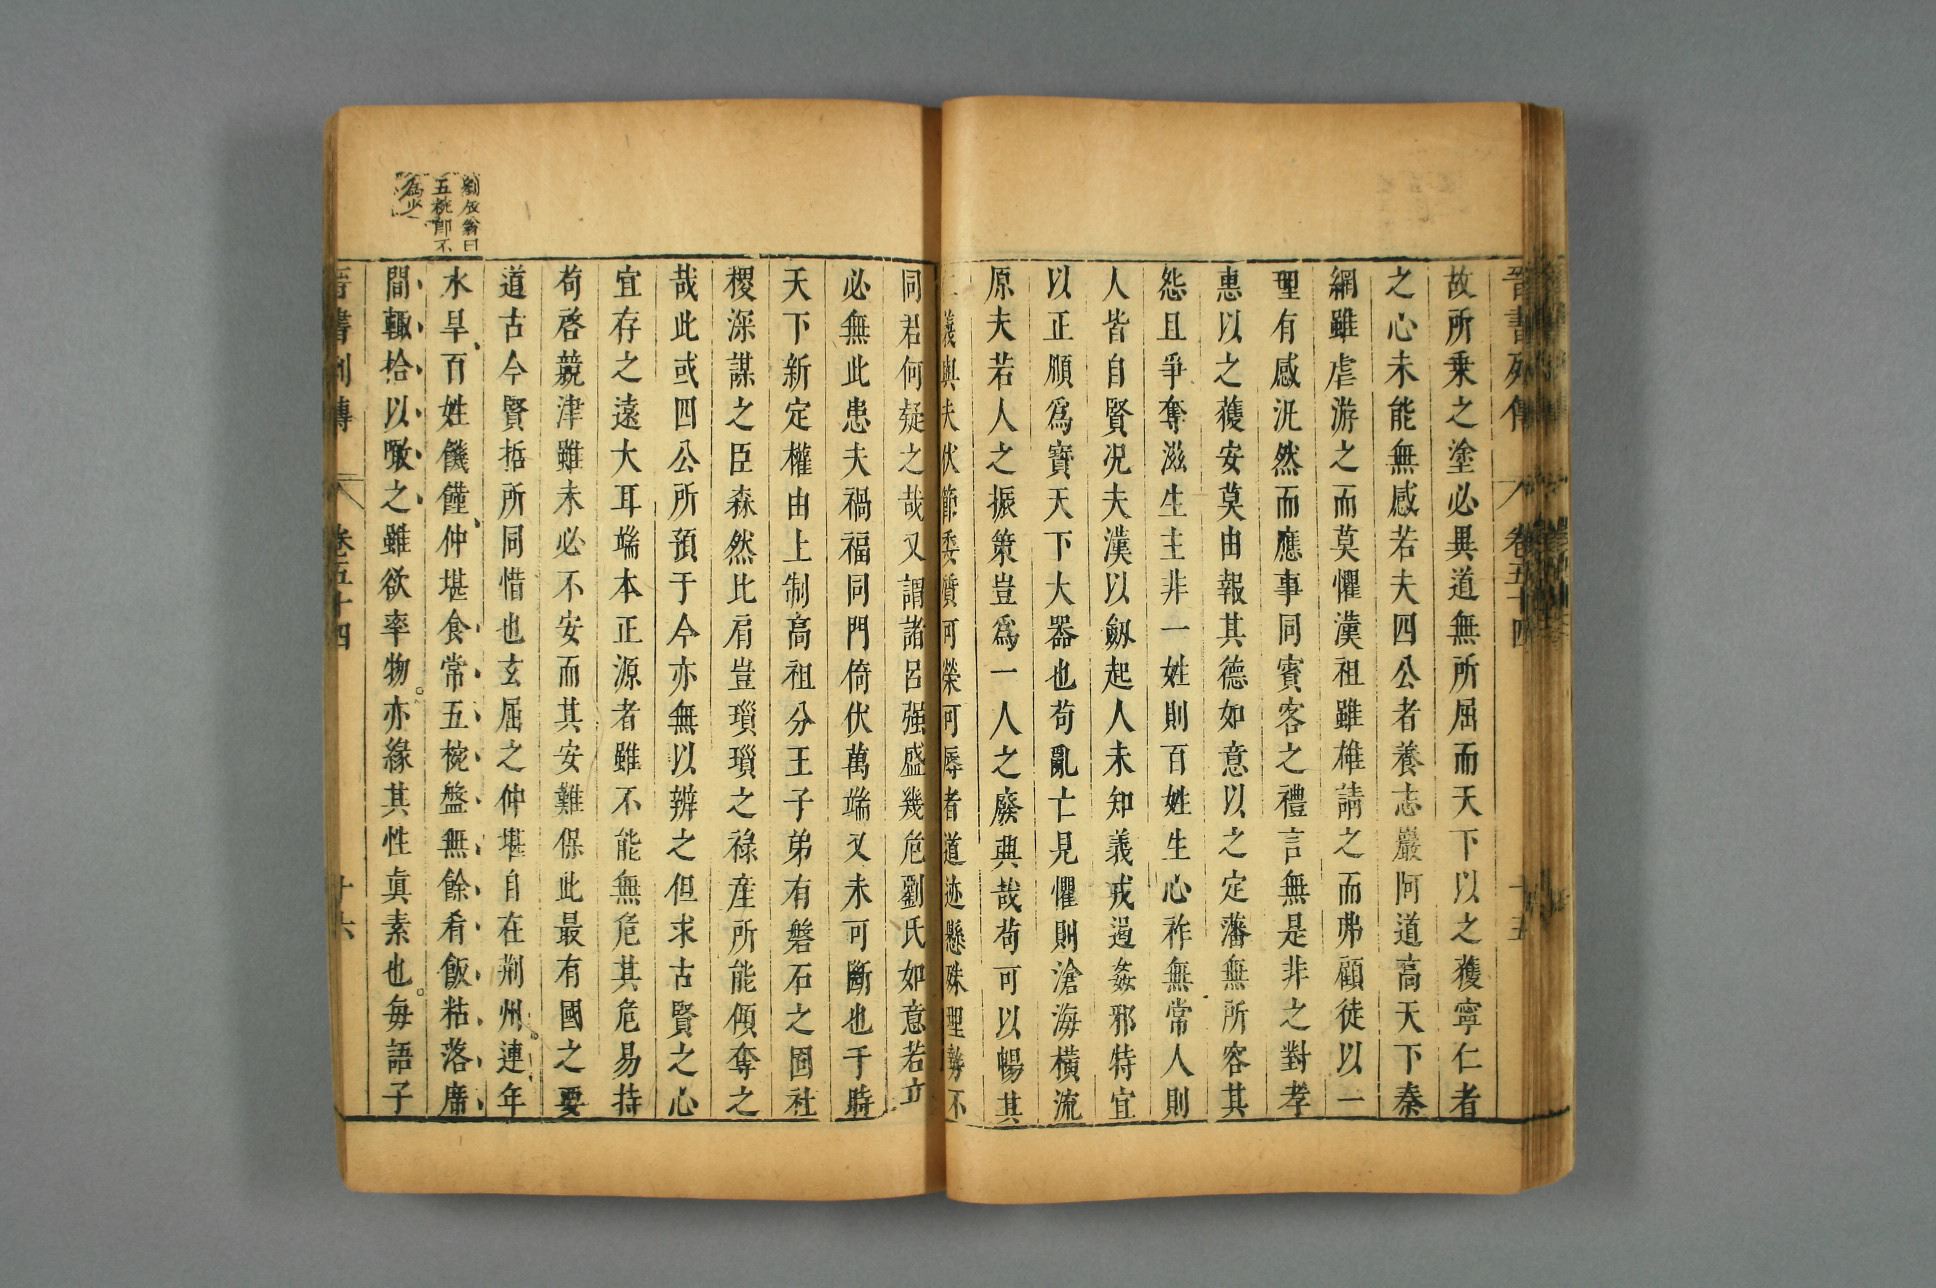 晉書列傳 卷五十四 十五
故所乗之塗必異道無所屈而天下以之獲寧仁者
之心未能無感若夫四公者養志巖阿道高天下秦
網雖虐游之而莫懼漢祖雖雄請之而弗顧徒以一
理有感汎然而應事同賓客之禮言無是非之對孝
惠以之獲安莫由報其德如意以之定藩無所容其
怨且爭奪滋生主非一姓則百姓生心祚無常人則
人皆自賢況夫漢以劒起人未知義戎遏姦邪特宜
以正順爲寶天下大器也茍亂亡見懼則滄海橫流
原夫若人之振策豈爲一人之廢興哉茍可以暢其
仁義與夫伏節委質可榮可辱者道迹懸殊理勢不
同君何疑之哉又謂諸呂强盛幾危劉氏如意若立
必無此患夫禍福同門倚伏萬端又未可斷也于時
天下新定權由上制高祖分王子弟有磐石之固社
稷深謀之臣森然比肩豈瑣瑣之祿産所能傾奪之
哉此或四公所預于今亦無以辨之但求古賢之心
宜存之遠大耳端本正源者雖不能無危其危易持
茍啓競津雖未必不安而其安難保此最有國之要
道古今賢哲所同惜也玄屈之仲堪自在荆州。連年
水旱百姓饑饉仲堪食常五椀盤無餘肴飯粘落席
間輒拾以噉之雖欲率物。亦緣其性眞素也。每語子
晉書列傳 卷五十四 十六
劉辰翁曰
五椀卽不
爲少